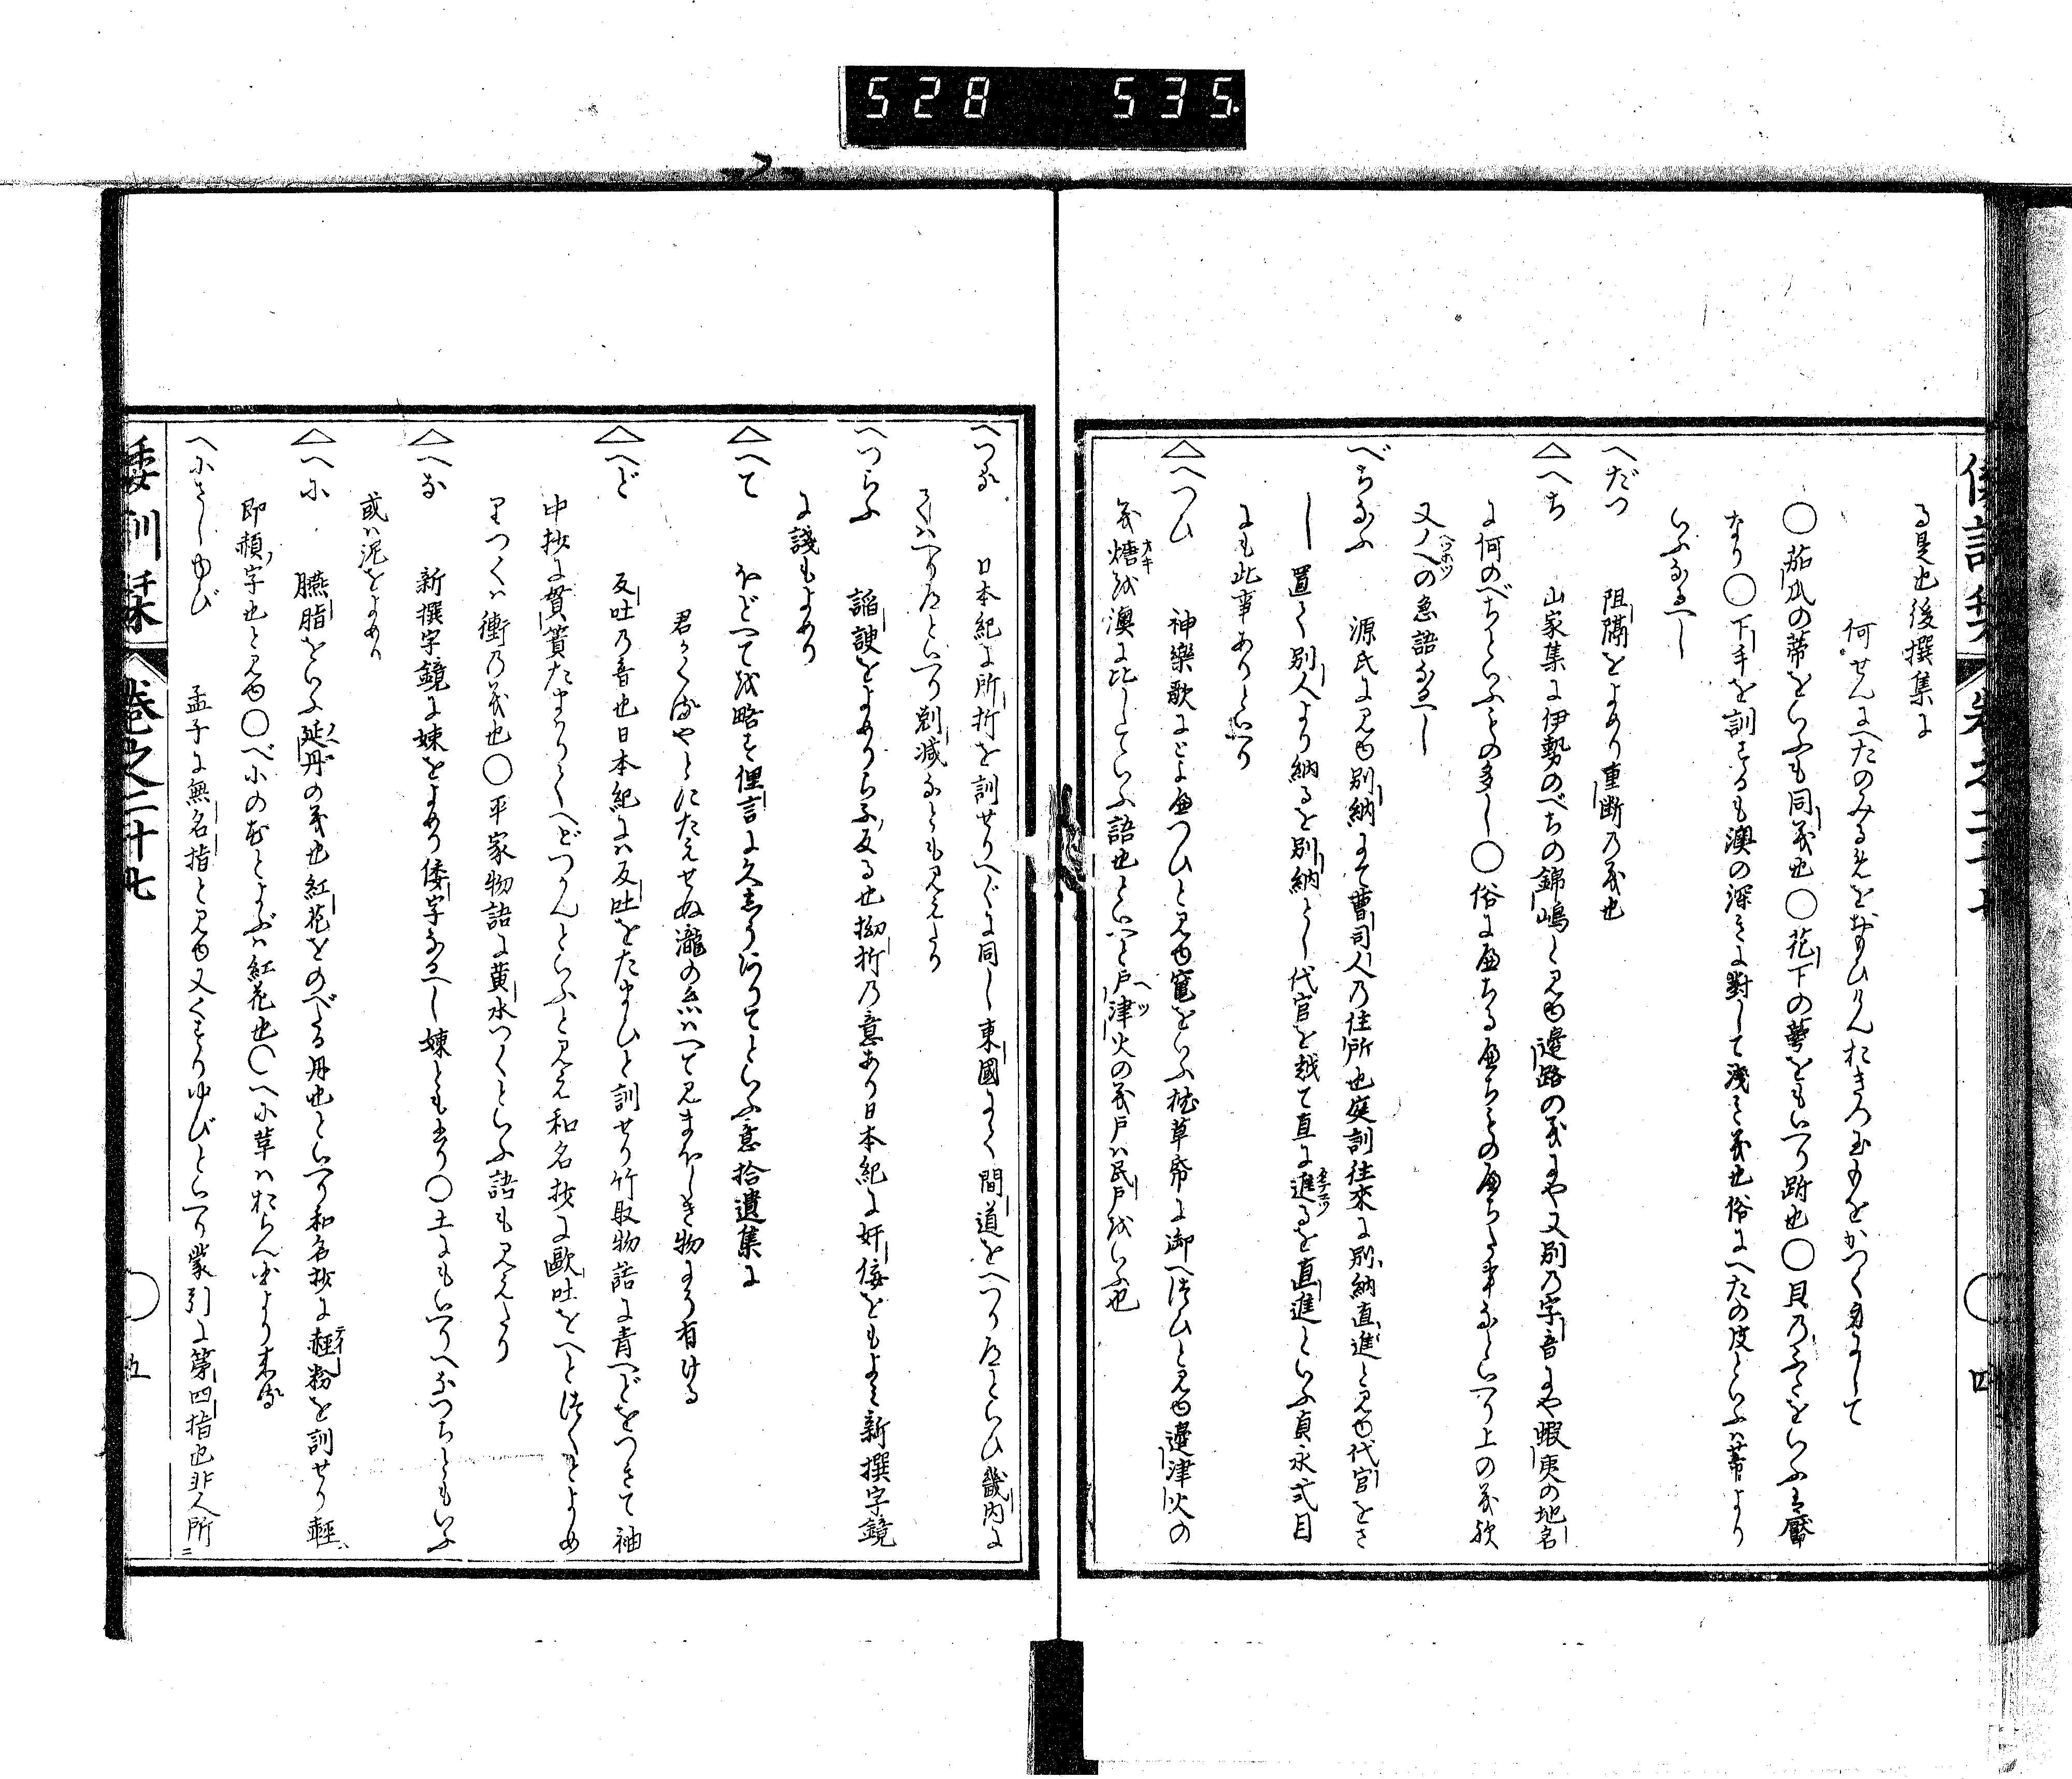 528 535
る是也後撰集に
何せんにへたのみるめをおもひけんおきつ玉もをかつく身にして
○茄瓜の蒂をいふも同義也○花下の萼をもいへり跗也○貝のふたをいふ
なり○下手を訓するも澳の深きに對して淺き義也俗にへたの皮といふハ蒂より
いふなるへし
へだつ 阻隔をよめり重断の義也
△へち 山家集に伊勢のべちの錦嶋と見ゆ邊路の義にや又別の字音にや蝦夷の地名
に何のべちといふもの多し○俗にへちるへちもののへちた事などいへり上の義歟
又ノヘの急語なるへし
べちなふ 源氏に見ゆ別納にて曹司人の住所也庭訓往來に別納直進と見ゆ代官をさ
し置く別人より納るを別納とし代官を越て直に進るを直進といふ貞永式目
にも此事ありといへり
△へつひ 神樂歌にとよへつひと見ゆ竈をいふ枕草帋に御へつひと見ゆ邊津火の
義𤏐を澳に比していふ語也といへと戸津火の義戸ハ民戸をいふ也
へつる 日本紀に所折を訓せりへぐに同し東國にて間道をへつり道といひ畿内に
てハへり道といへり剝減なとも見えたり
へつらふ 謟諛をよめりらふ反る也拗折の意あり日本紀に奸佞をもよみ新撰字鏡
に諓もよめり
△へて ほどへてを略す俚言に久しうありてといふ意拾遺集に
君かくるやとにたえせぬ瀧の糸ハへて見まほしき物にそ有ける
△へど 反吐の音也日本紀にハ反吐をたまひと訓せり竹取物語に青へどをつきて袖
中抄に貫簀たまりてへどつかんといふと見え和名抄に歐吐をへとつくとよめ
りつくハ衝の義也○平家物語に黄水つくといふ語も見えたり
△へな 新撰字鏡に㛦をよめり倭字なるへし㛦とも書り○土にもいりへなつちともいふ
或ハ泥をよめり
△へに 臙脂をいふ延丹の義也紅花をのべる丹也といへり和名抄に䞓粉を訓せり䞓
即赬字也と見ゆ○べにの花とよぶハ紅花也○へに草ハおらんだより来る
へにさしゆび 孟子に無名指と見ゆ又くすりゆびといへり蒙引に第四指也非人所ニ
倭訓栞 卷之二十七 ○ 五